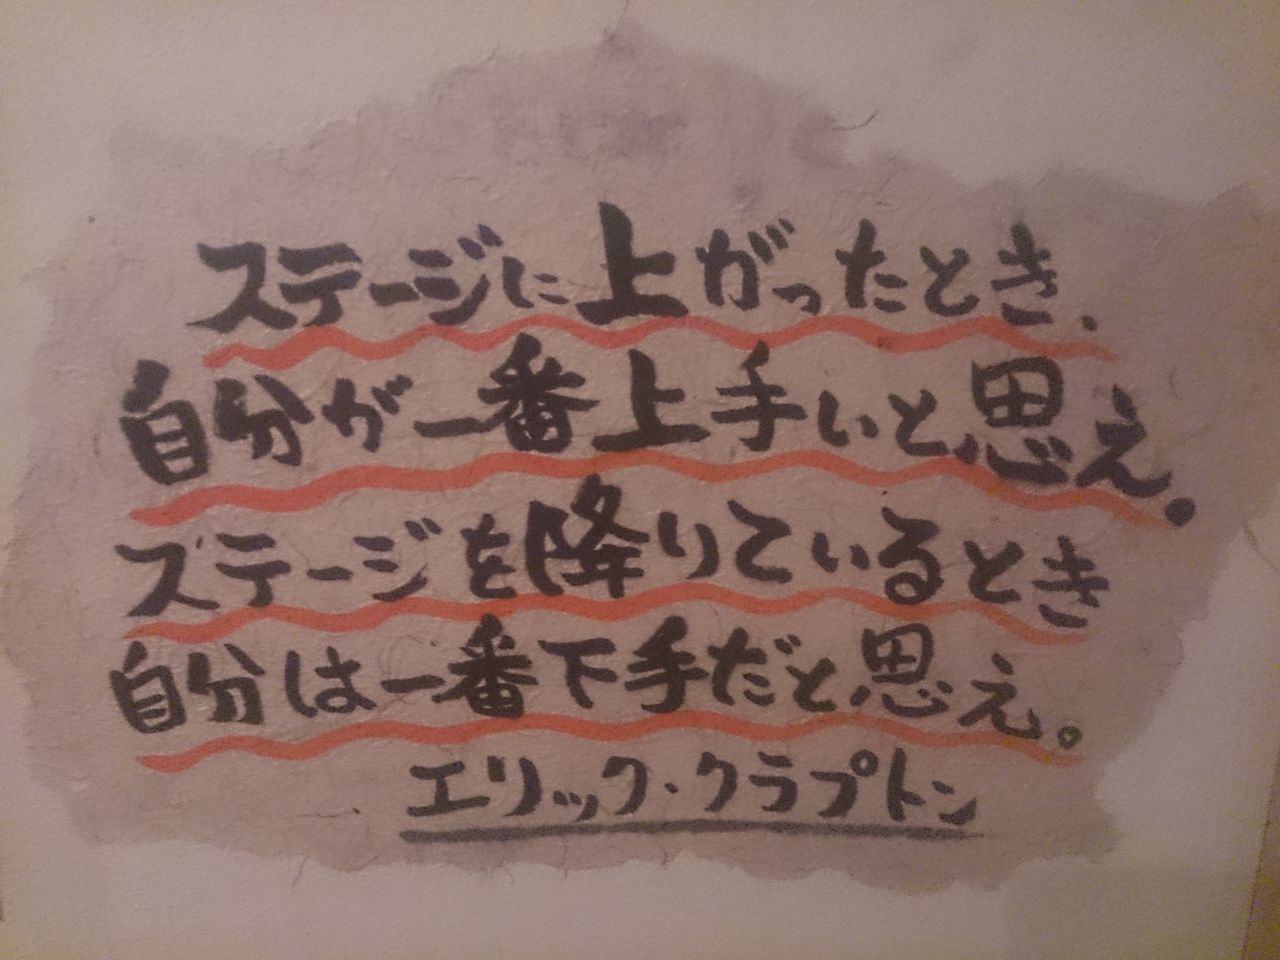 ステージに上がったとき、
自分が一番上手いと思え。
ステージを降りているとき
自分は一番下手だと思え。
エリック・クラプトン